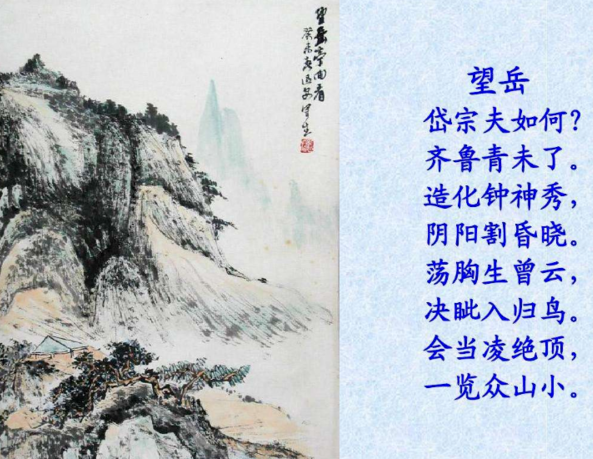 望岳
岱宗夫如何?
齐鲁青未了。
造化钟神秀,
阴阳割昏晓。
荡胸生曾云,
决眦入归鸟。
会当凌绝顶,
一览众山小。
望岳亭回看